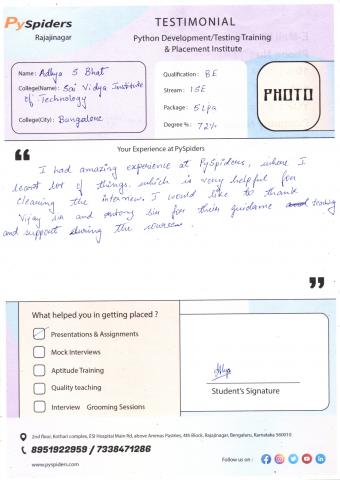 PySpiders
Rajajinagar
TESTIMONIAL
Python Development/Testing Training
& Placement Institute
Name: Adhya S Bhat
College(Name): Sai Vidya Institute
of Technology
College(City): Bangalore
Qualification: BE
Stream: ISE
Package: 5 Lpa
Degree %: 72%
PHOTO
Your Experience at PySpiders
“
I had amazing experience at PySpiders, where I
learnt lot of things. which is very helpful for
clearing the interview. I would like to thank
Vijay sir and antony sir for their guidance teaching
and support during the course.
”
What helped you in getting placed ?
Presentations & Assignments
Mock Interviews
Aptitude Training
Quality teaching
Interview Grooming Sessions
Student's Signature
2nd floor, Kothari complex, ESI Hospital Main Rd, above Ammas Pastries, 4th Block, Rajajinagar, Bengaluru, Karnataka 560010
8951922959 / 7338471286
www.pyspiders.com
Follow us on :